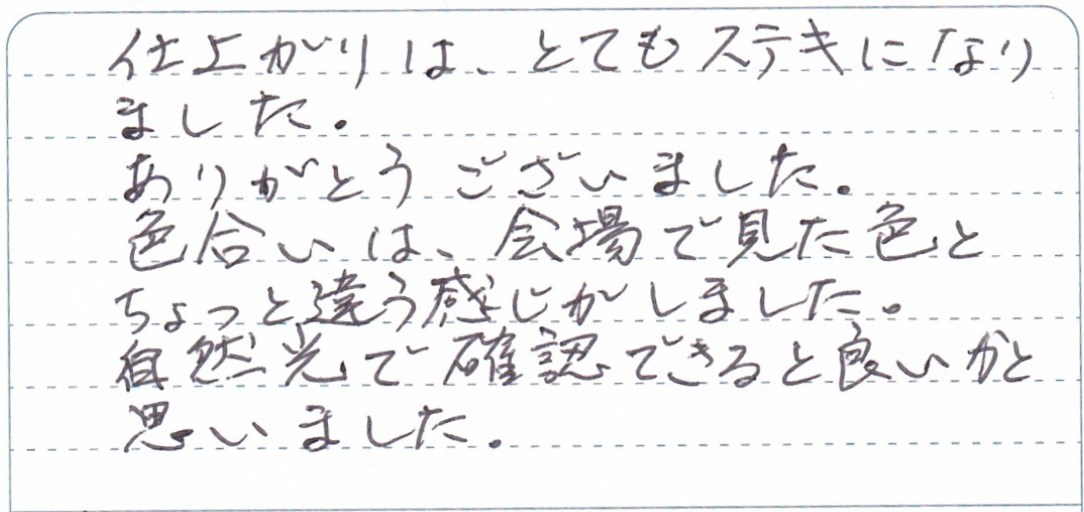 仕上がりは、とてもステキになり
ました。
ありがとうございました。
色合いは、会場で見た色と
ちょっと違う感じがしました。
自然光で確認できると良いかと
思いました。